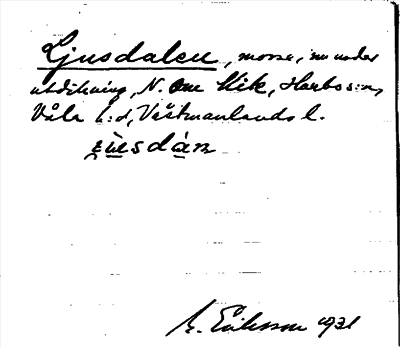 Ljusdalen, mosse, nu under
utdikning, N. om Mik, Harbo s:n,
Våla h:d, Västmanlands l.
ʒùsdàn
M. Eriksson 1931